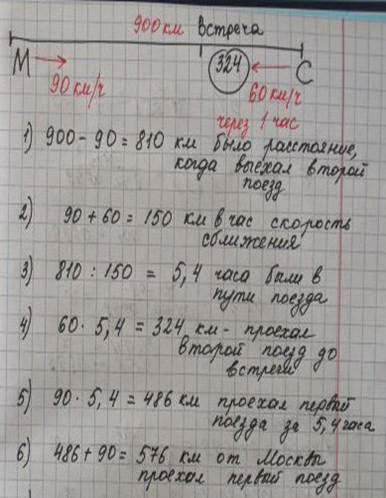 900 км встреча
М 324 С
90 км/ч 60 км/ч
через 1 час
1) 900 - 90 = 810 км было расстояние,
когда выехал второй
поезд
2) 90 + 60 = 150 км в час скорость
сближения
3) 810 : 150 = 5,4 часа были в
пути поезда
4) 60 · 5,4 = 324 км - проехал
второй поезд до
встречи
5) 90 · 5,4 = 486 км проехал первый
поезда за 5,4 часа
6) 486 + 90 = 576 км от Москвы
проехал первый поезд